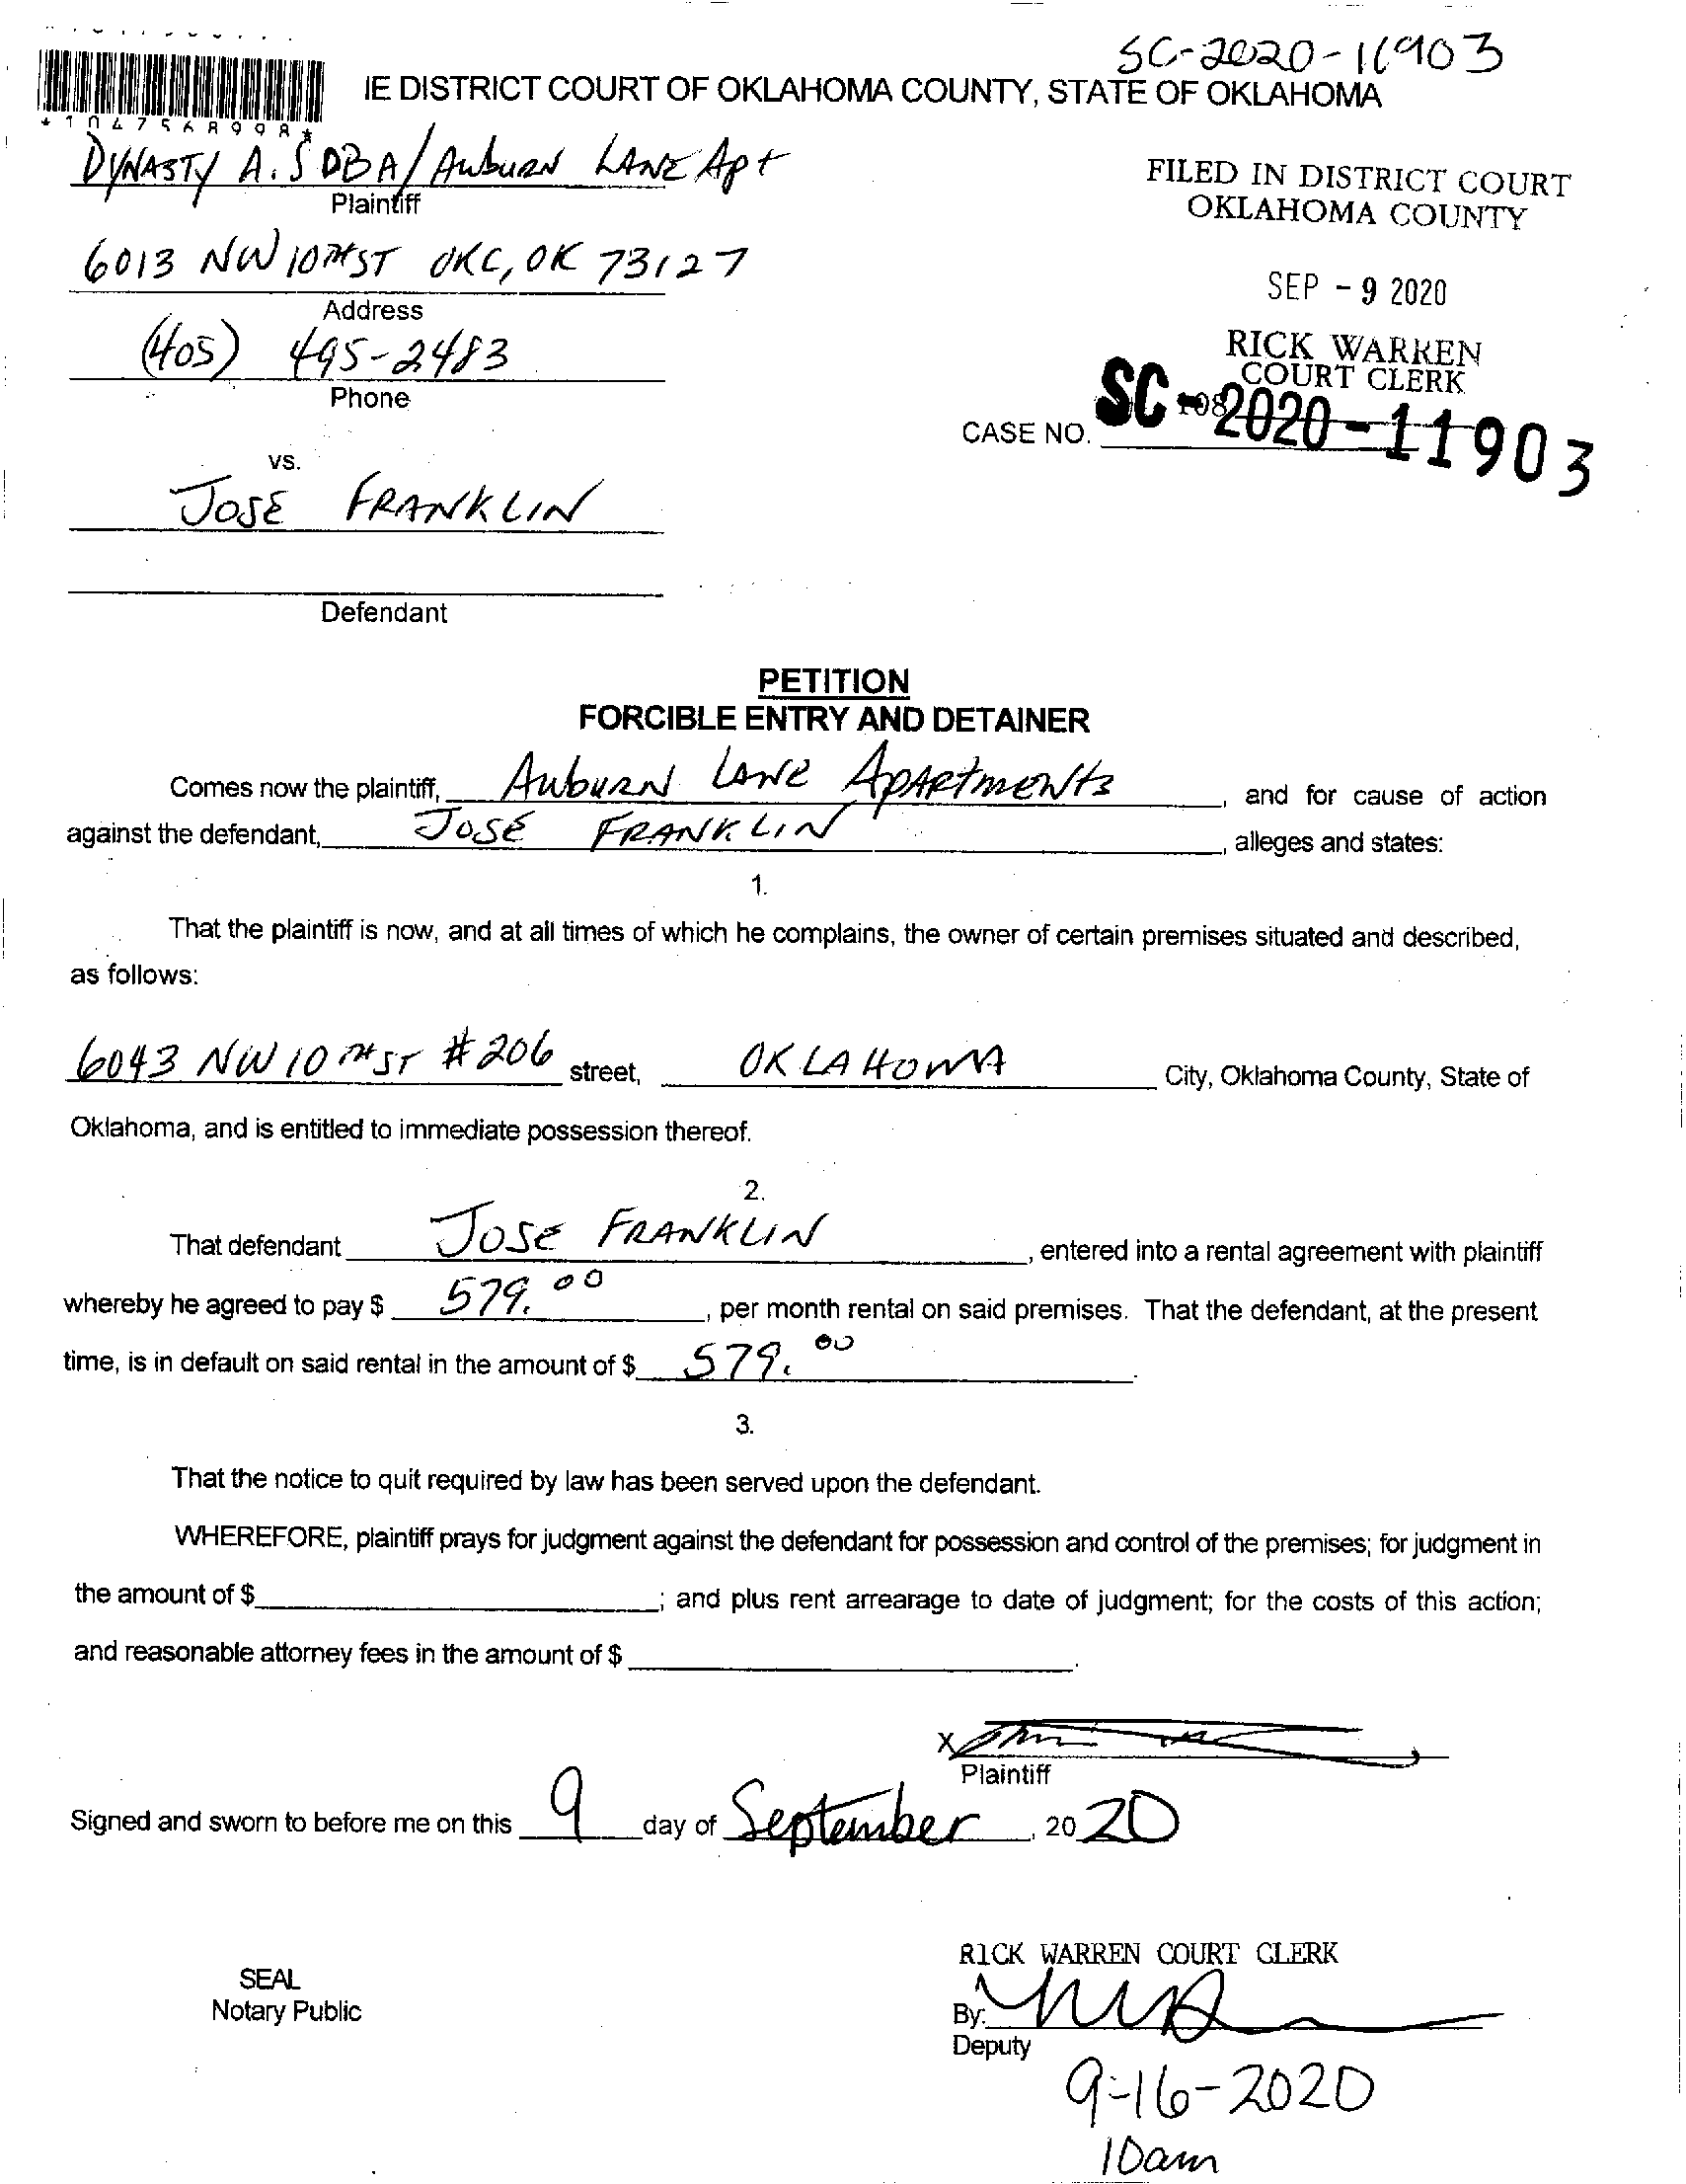 SC-2020-11903
IE DISTRICT COURT OF OKLAHOMA COUNTY, STATE OF OKLAHOMA
*1047568998*
DYNASTY A.S DBA/AubuRN LANE Apt
Plaintiff
FILED IN DISTRICT COURT
OKLAHOMA COUNTY
6013 NW 10TH ST OKC, OK 73127
Address
SEP - 9 2020
(405) 495-2483
Phone
RICK WARREN
COURT CLERK
108
CASE NO. SC-2020-11903
vs.
JOSE FRANKLIN
Defendant
PETITION
FORCIBLE ENTRY AND DETAINER
Comes now the plaintiff, AubuRN LANE ApARtmeNts, and for cause of action
against the defendant, JOSE FRANKLIN, alleges and states:
1.
That the plaintiff is now, and at all times of which he complains, the owner of certain premises situated and described,
as follows:
6043 NW 10TH ST #206 street, OKLAHOMA City, Oklahoma County, State of
Oklahoma, and is entitled to immediate possession thereof.
2.
That defendant JOSE FRANKLIN, entered into a rental agreement with plaintiff
whereby he agreed to pay $ 579.00, per month rental on said premises. That the defendant, at the present
time, is in default on said rental in the amount of $ 579.00.
3.
That the notice to quit required by law has been served upon the defendant.
WHEREFORE, plaintiff prays for judgment against the defendant for possession and control of the premises; for judgment in
the amount of $ ; and plus rent arrearage to date of judgment; for the costs of this action;
and reasonable attorney fees in the amount of $ .
X
Plaintiff
Signed and sworn to before me on this 9 day of September, 2020
RICK WARREN COURT CLERK
SEAL
Notary Public
By:
Deputy
9-16-2020
10am